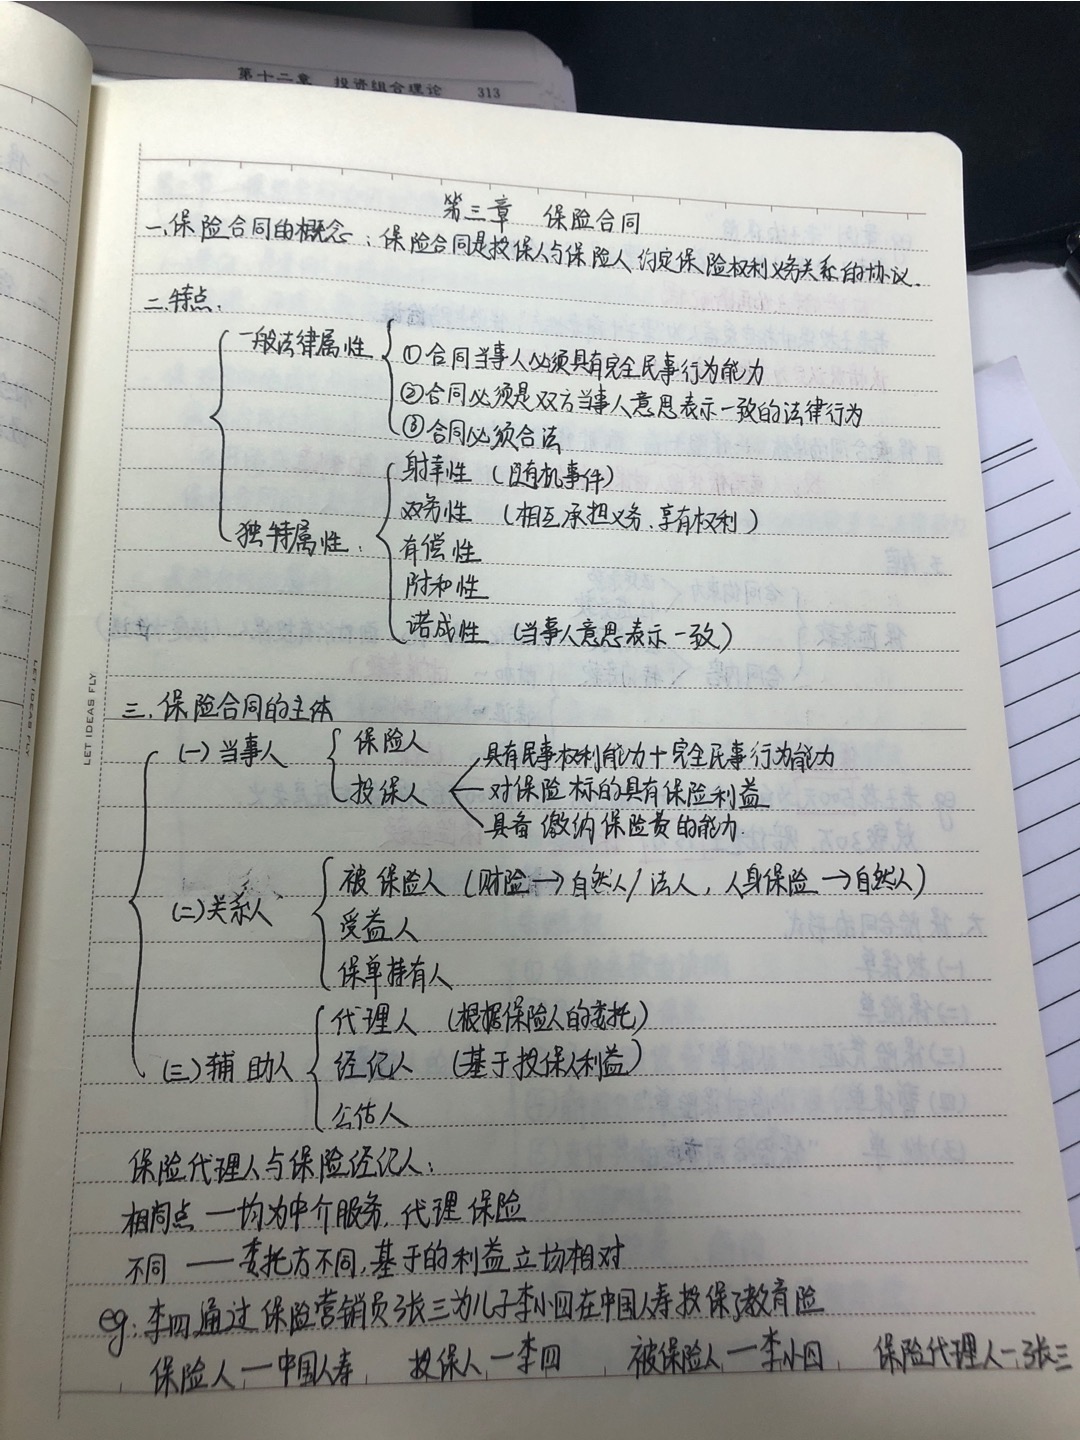 第十二章 投资组合理论 313
第三章 保险合同
一、保险合同的概念：保险合同是投保人与保险人约定保险权利义务关系的协议.
二.特点：
一般法律属性
①合同当事人必须具有完全民事行为能力
②合同必须是双方当事人意思表示一致的法律行为
③合同必须合法
独特属性：
射幸性（随机事件）
双务性（相互承担义务、享有权利）
有偿性
附和性
诺成性（当事人意思表示一致）
LET IDEAS FLY
LET IDEAS FLY
三.保险合同的主体
(一)当事人
保险人
投保人
具有民事权利能力+完全民事行为能力
对保险标的具有保险利益
具备缴纳保险费的能力.
(二)关系人
被保险人（财险→自然人/法人，人身保险→自然人）
受益人
保单持有人
(三)辅助人
代理人（根据保险人的委托）
经纪人（基于投保人利益）
公估人
保险代理人与保险经纪人：
相同点 一均为中介服务.代理保险
不同 ——委托方不同,基于的利益立场相对
eg:李四通过保险营销员张三为儿子李小四在中国人寿投保了教育险
保险人一中国人寿 投保人一李四 被保险人一李小四 保险代理人一张三